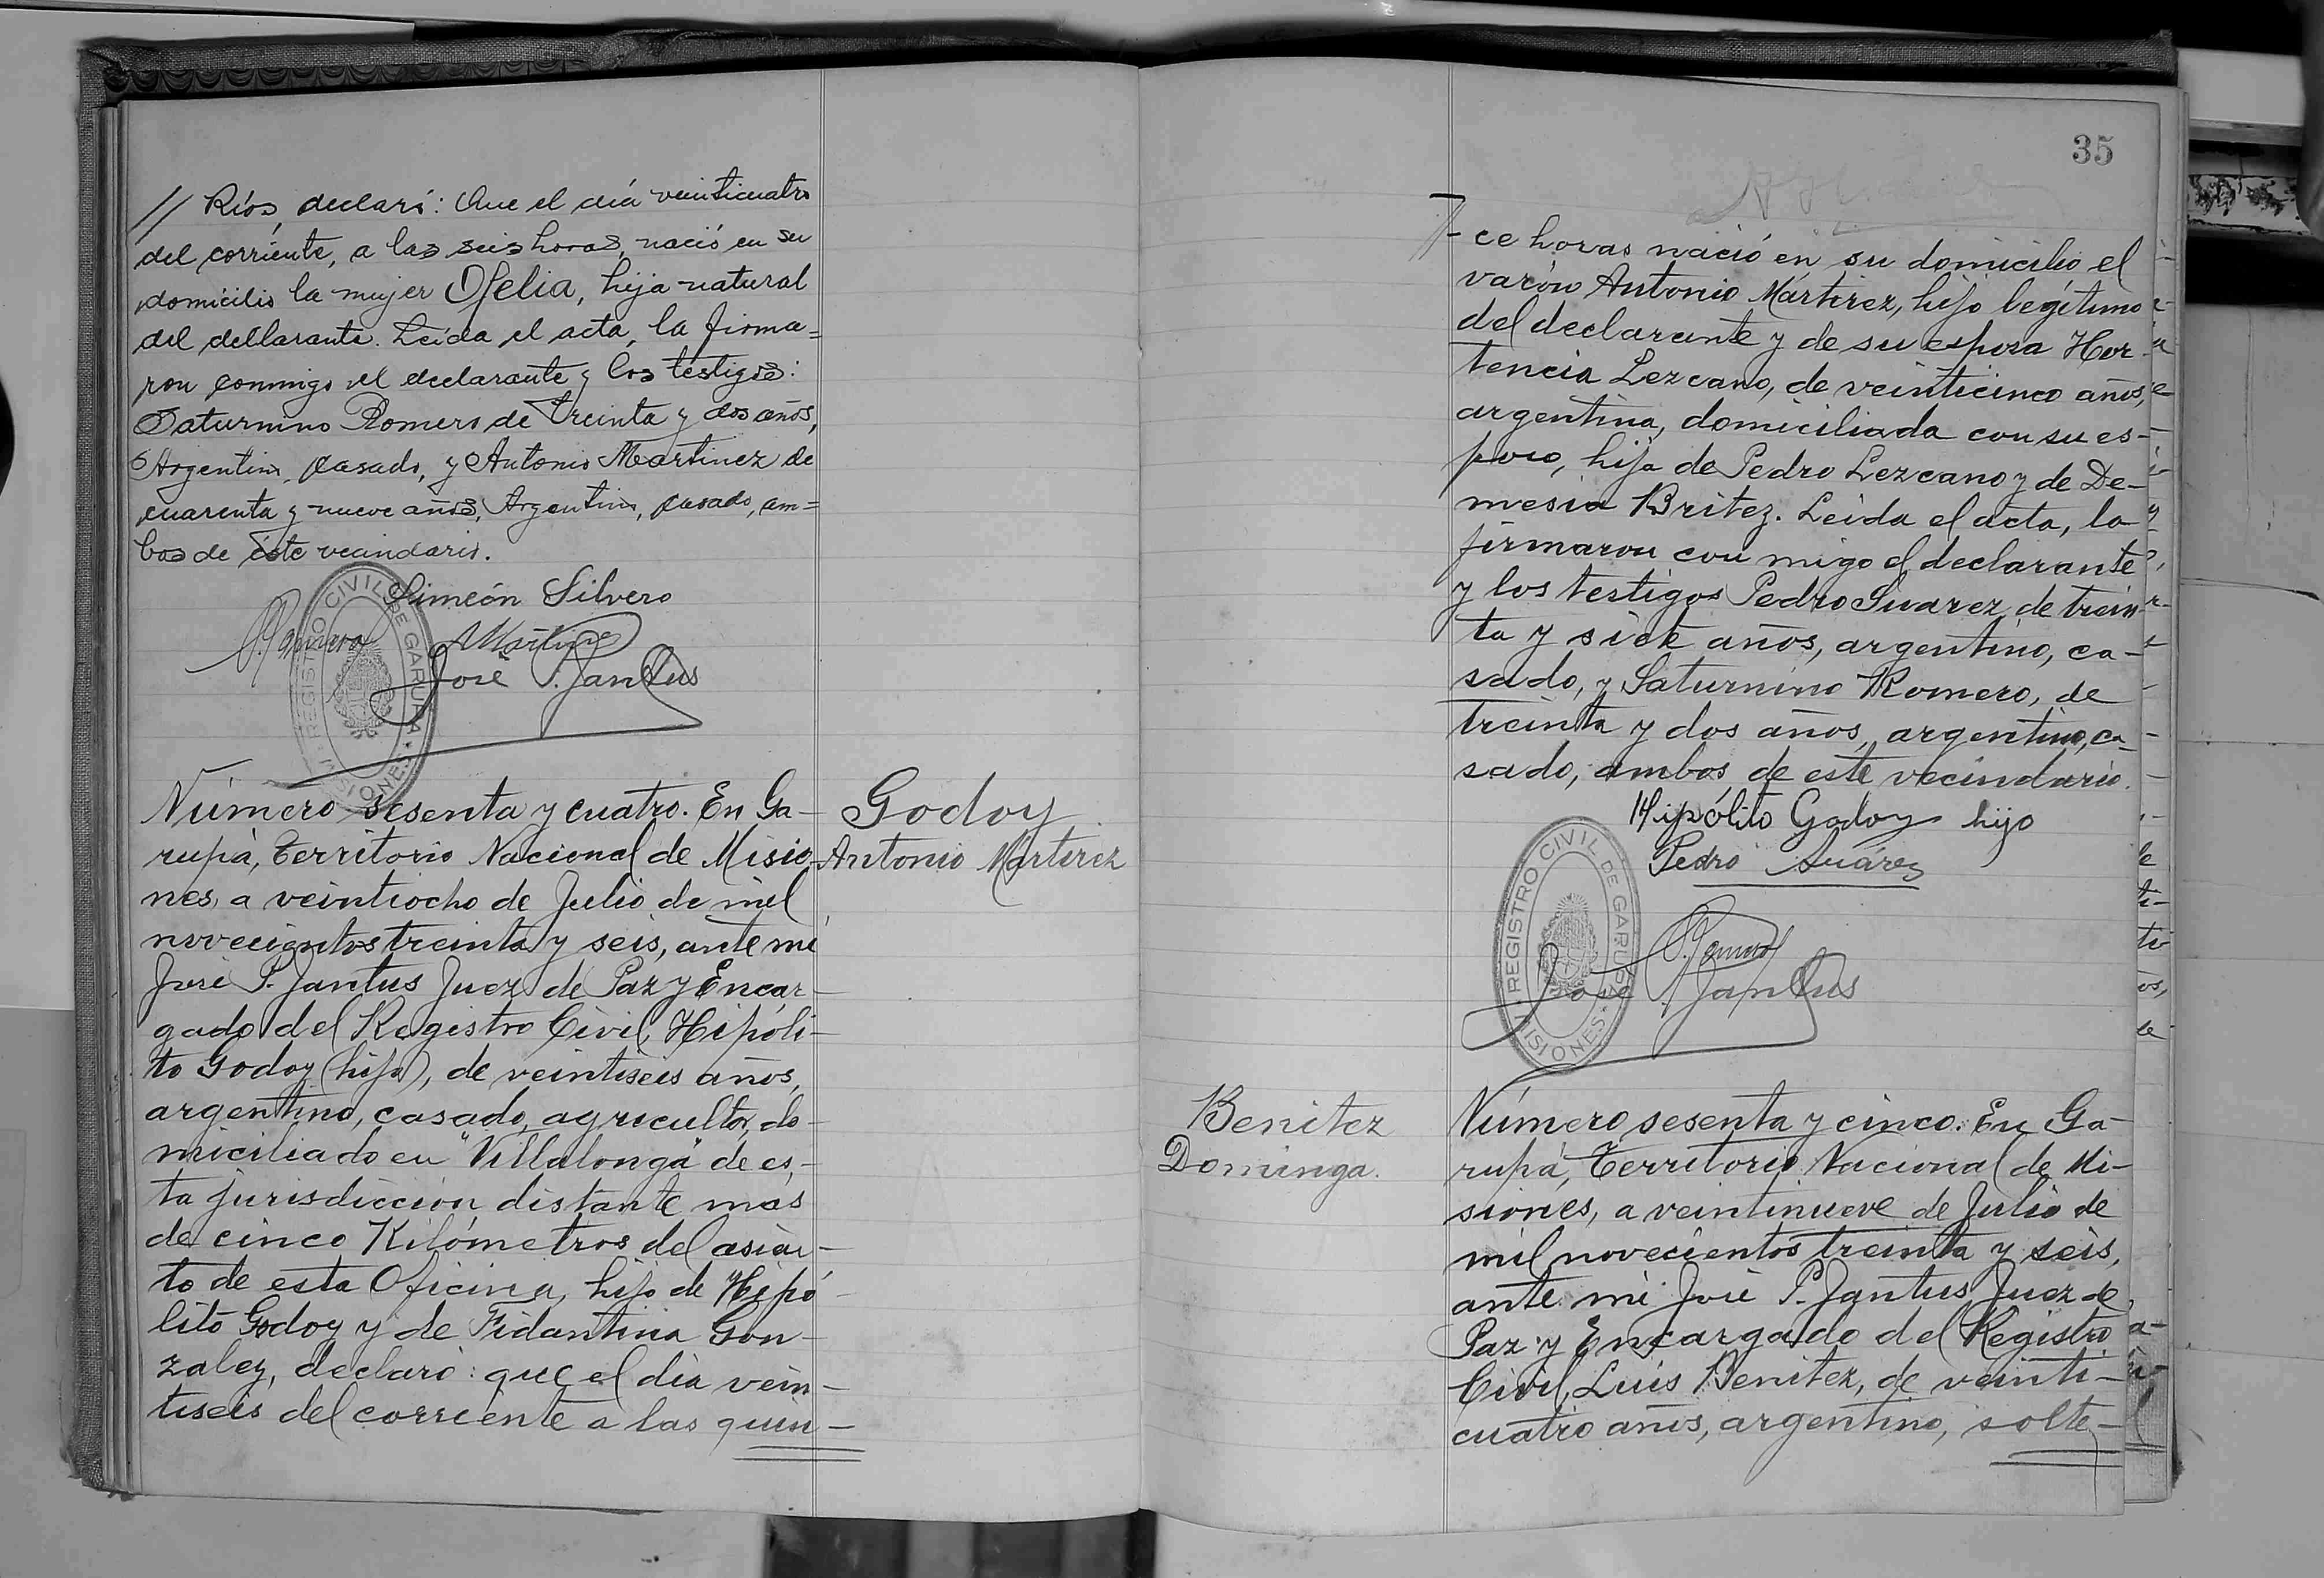 // Ríos, declaró: Que el día veinticuatro
del corriente, a las seis horas, nació en su
domicilio la mujer Ofelia, hija natural
del declarante. Leída el acta, la firma=
ron conmigo el declarante y los testigos:
Saturnino Romero de treinta y dos años,
Argentino, casado, y Antonio Martinez de
cuarenta y nueve años, Argentino, casado, am=
bos de éste vecindario.
Simeón Silvero
S. Romero
Martinez
José P. Jantus
REGISTRO CIVIL DE GARUPA MISIONES
Número sesenta y cuatro. En Ga-
rupá, Territorio Nacional de Misio-
nes, a veintiocho de Julio de mil
novecientos treinta y seis, ante mi
José P. Jantus Juez de Paz y Encar-
gado del Registro Civil, Hipóli-
to Godoy (hijo), de veintiseis años,
argentino, casado, agricultor, do-
miciliado en "Villalonga" de es-
ta jurisdicción distante mas
de cinco Kilómetros del asien-
to de esta Oficina, hijo de Hipó-
lito Godoy y de Fidantina Gon-
zalez, declaró: que el día vein-
tiseis del corriente a las quin-
Godoy
Antonio Martirez
35
ce horas nació en su domicilio el
varón Antonio Martirez, hijo legítimo
del declarante y de su esposa Hor-
tencia Lezcano, de veinticinco años,
argentina, domiciliada con su es-
poso, hija de Pedro Lezcano y de De-
mesia Britez. Leida el acta, la
firmaron con migo el declarante
y los testigos Pedro Suarez, de trein-
ta y siete años, argentino, ca-
sado, y Saturnino Romero, de
treinta y dos años, argentino, ca-
sado, ambos de este vecindario.
Hipólito Godoy hijo
Pedro Suárez
S. Romero
José P. Jantus
REGISTRO CIVIL DE GARUPA MISIONES
Benitez
Dominga.
Número sesenta y cinco: En Ga-
rupá, Territorio Nacional de Mi-
siones, a veintinueve de Julio de
mil novecientos treinta y seis,
ante mi José P. Jantus Juez de
Paz y Encargado del Registro
Civil, Luis Benitez, de veinti-
cuatro años, argentino, solte-